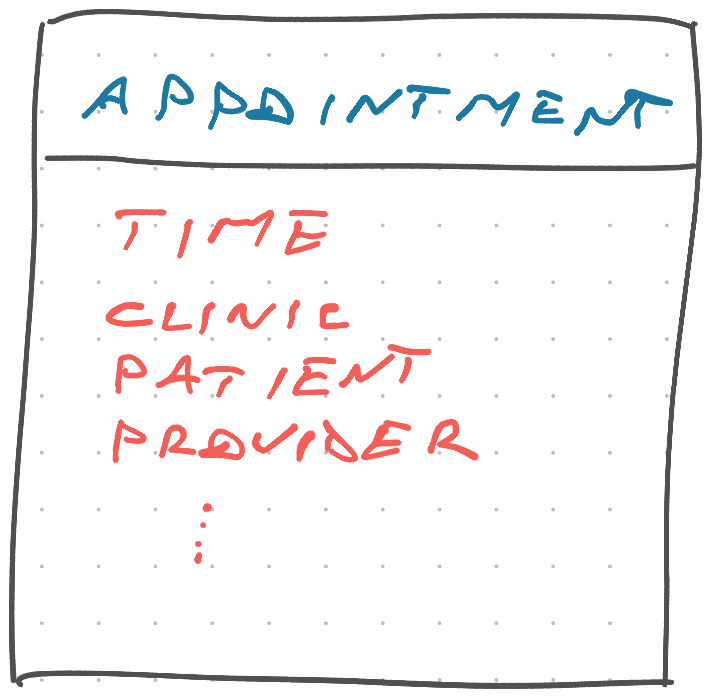 APPOINTMENT
TIME
CLINIC
PATIENT
PROVIDER
⋮